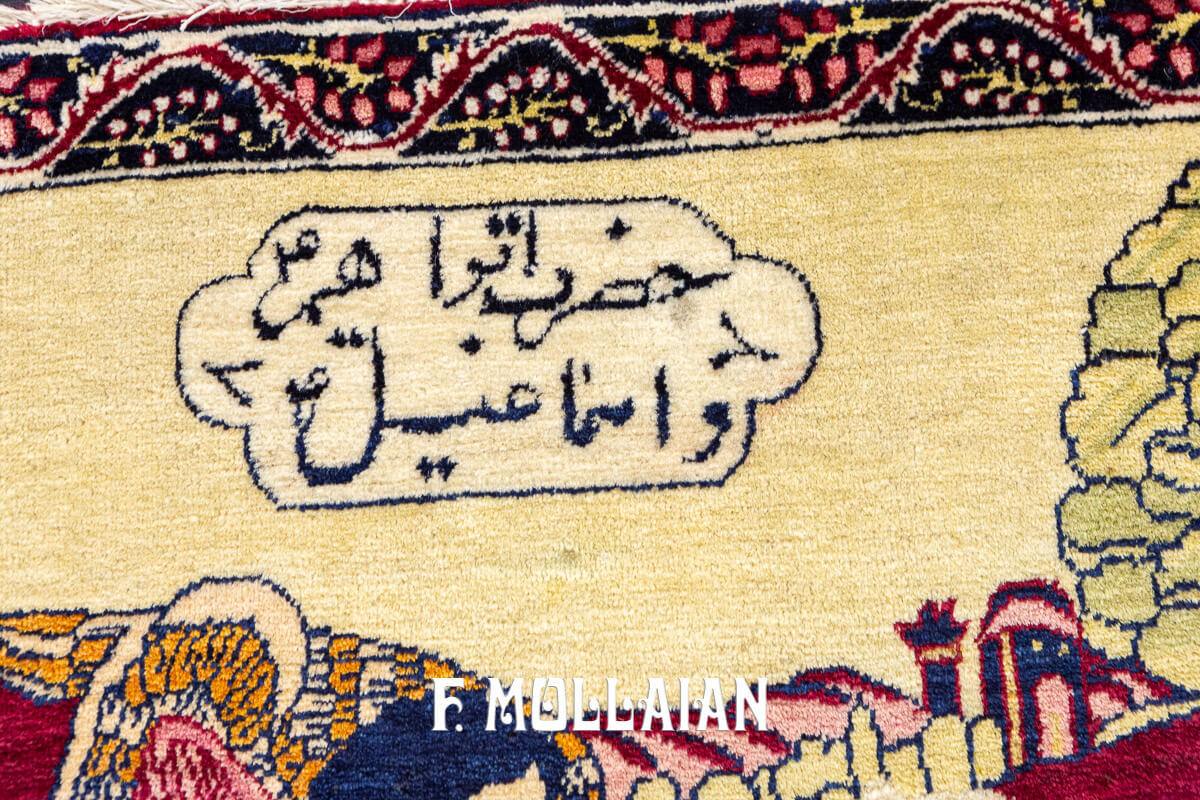 حضرت ابراهیم ع
و اسماعیل ع
F. MOLLAIAN